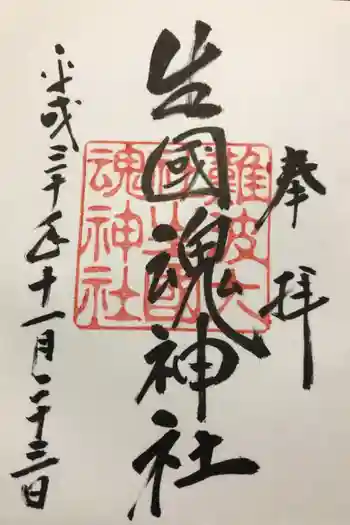 奉拝
生國魂神社
難波大
社生國
魂神社
平成三十年十一月二十三日